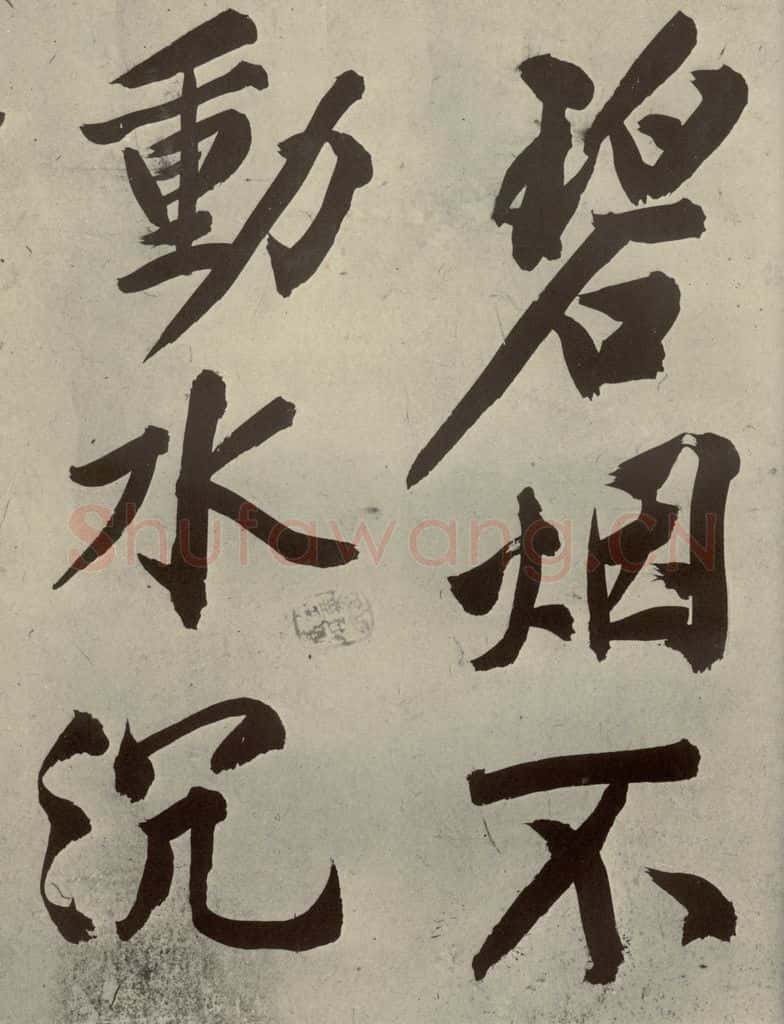 碧烟不
動水沉
Shufawang.CN